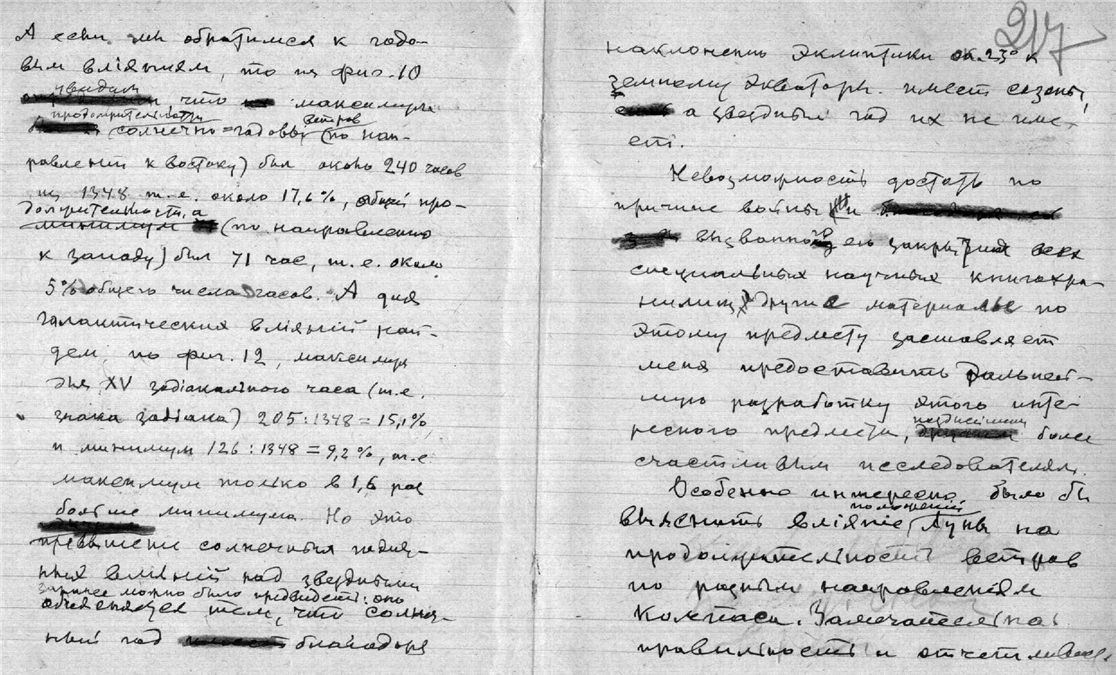 А если мы обратимся к годо-
вым влiянiям, то из фиг. 10
увидим
что максимум
продолжительности
солнечно=годовых ветров (по нап-
равлению к востоку) был около 240 часов
из 1348 т.е. около 17,6%, общей про-
должительности, а
минимум (по направлению
к западу) был 71 час, т.е. около
5% общего числа часов. А для
галактических влiянiй най-
дем, по фиг. 12, максимум
для XV зодiакального часа (т.е.
знака зодiака) 205:1348=15,1%,
и минимум 126:1348=9,2%, т.е.
максимум только в 1,6 раз
больше минимума. Но это
превышение солнечных годич-
ных влiянiй над звездными
заранее можно было предвидеть: оно
объясняется тем, что солнеч-
ный год благодаря
217
наклонению эклиптики ок. 23° к
земному экватору имеет сезоны,
а звездный год их не име-
ет.
Невозможность достать по
причине войны и
вызванного ею закрытия всех
специальных научных книгохра-
нилищ другие материалы по
этому предмету заставляет
меня предоставить дальней-
шую разработку этого инте-
ресного предмета, позднейшим более
счастливым исследователям.
Особенно интересно было бы
выяснить влiянiе положений Луны на
продолжительность ветров
по разным направлениям
компаса. Замечательная
правильность и отчетливость